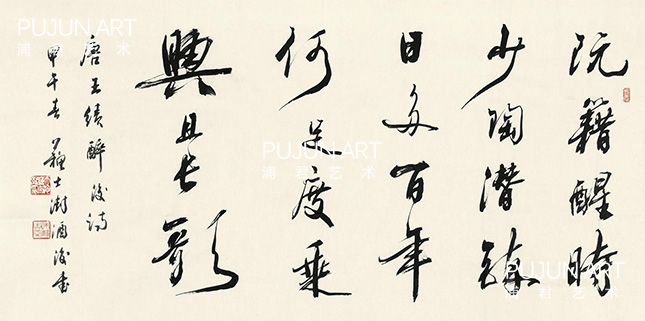 阮籍醒時
少陶潜醉
日多百年
何足度乘
興且長歌
唐王績醉後詩
甲午春 蘇士澍酒後書
PUJUN.ART
浦君艺术
PUJUN.ART
浦君艺术
PUJUN.ART
浦君艺术